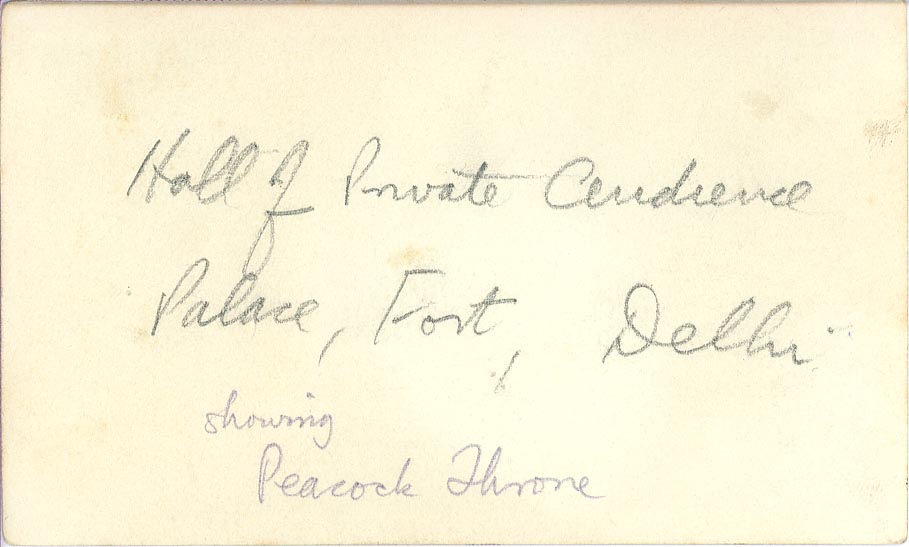 Hall of Private Audience
Palace, Fort, Delhi
showing
Peacock Throne